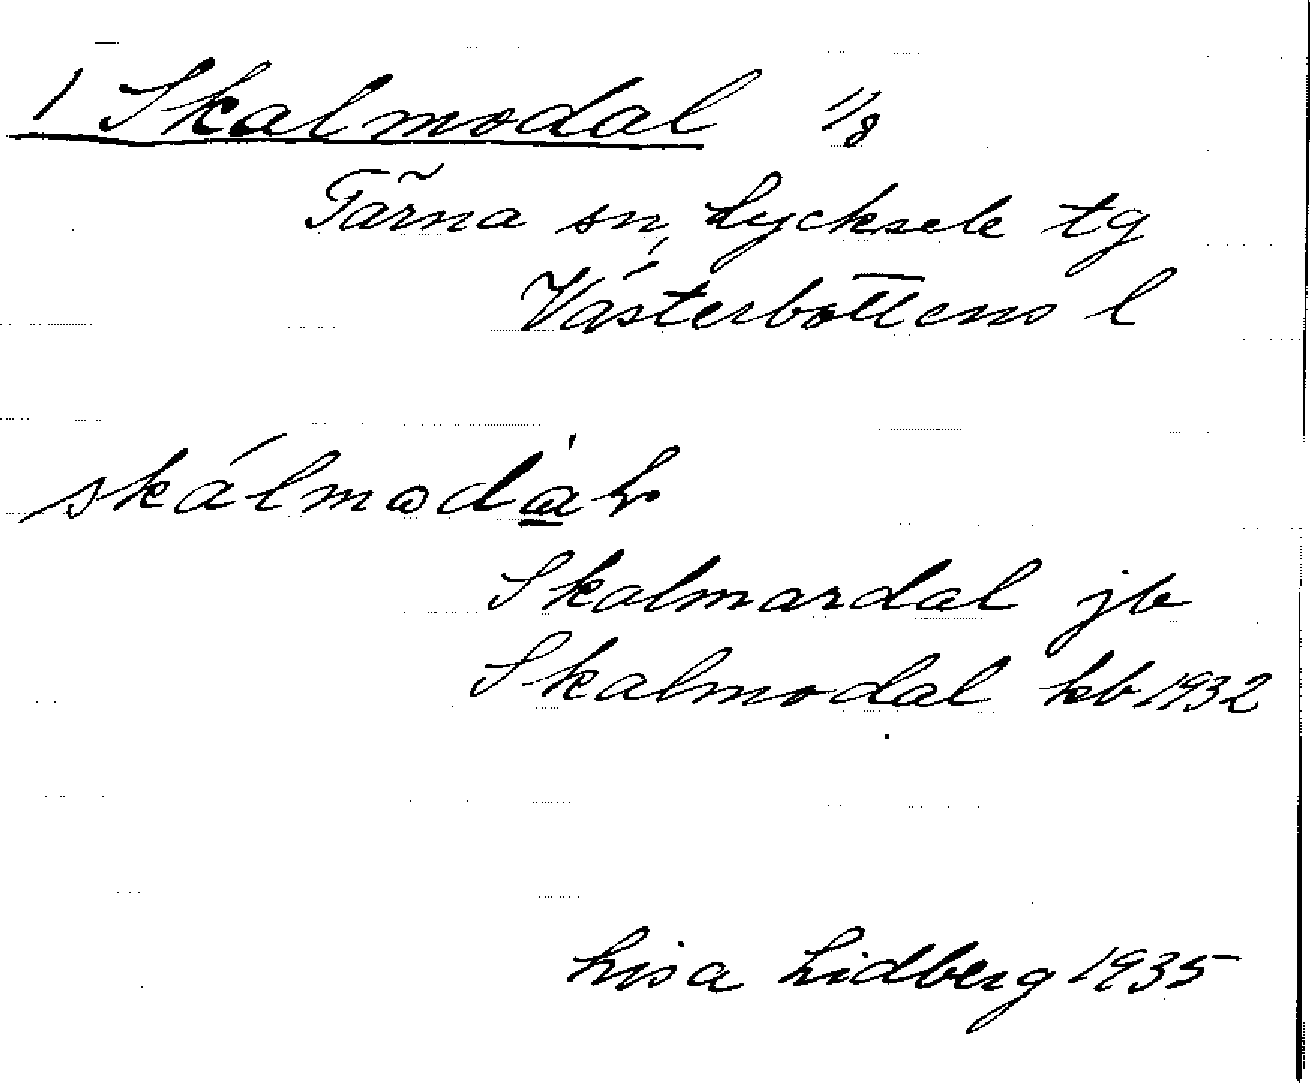 1 Skalmodal 1/8
Tärna sn, Lycksele tg
Västerbottens l
skálmodàl
Skalmardal jb
Skalmodal kb 1932
Lisa Lidberg 1935